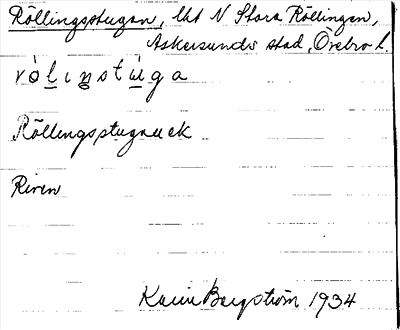 Röllingsstugan, lht N Stora Röllingen,
Askersunds stad, Örebro l.
röliŋstùga
Röllingsstugan ek
Riven
Karin Bergström 1934